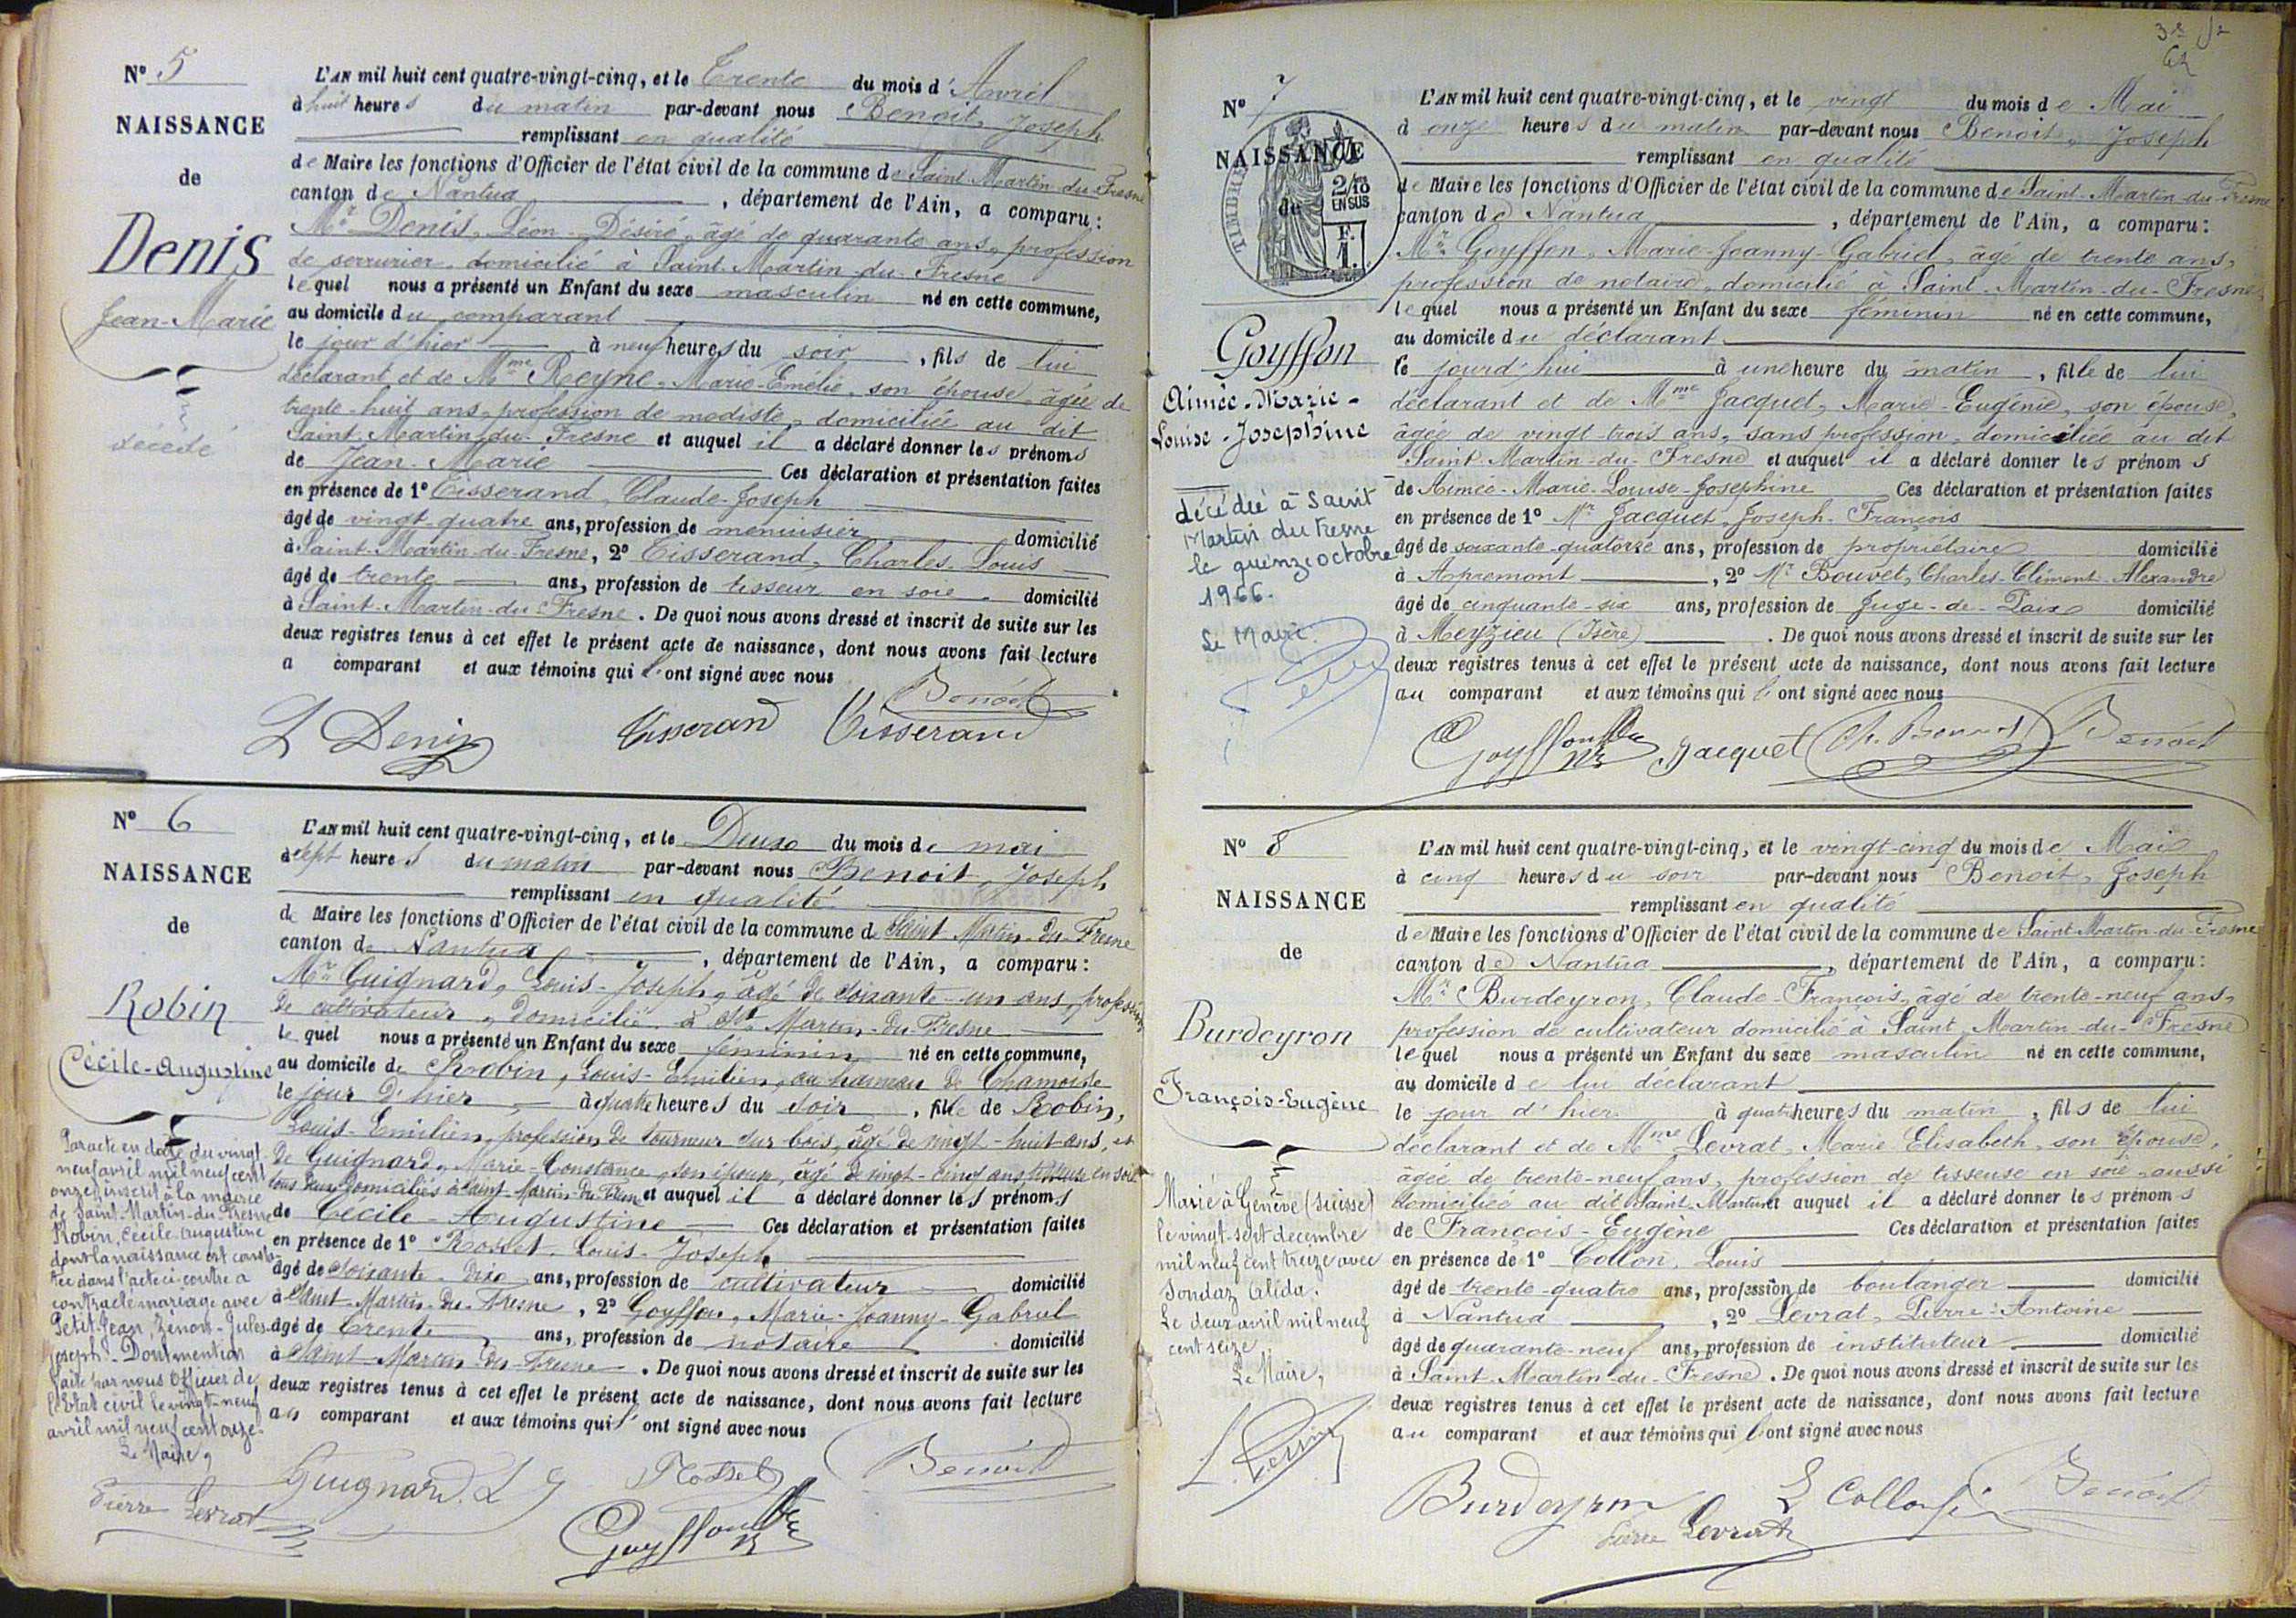 N° 5
NAISSANCE
de
Denis
Jean-Marie
décédé
L'AN mil huit cent quatre-vingt-cinq, et le Trente du mois d'Avril
à huit heures du matin par-devant nous Benoit, Joseph
remplissant en qualité
de Maire les fonctions d'Officier de l'état civil de la commune de Saint-Martin-du-Fresne
canton de Nantua, département de l'Ain, a comparu:
Mr Denis, Léon-Désiré, âgé de quarante ans, profession
de serrurier, domicilié à Saint-Martin-du-Fresne
lequel nous a présenté un Enfant du sexe masculin né en cette commune,
au domicile du comparant
le jour d'hier à neuf heures du soir, fils de lui
déclarant et de Mme Reyne, Marie-Emélie, son épouse, âgée de
trente-huit ans, profession de modiste, domiciliée au dit
Saint-Martin-du-Fresne et auquel il a déclaré donner les prénoms
de Jean-Marie Ces déclaration et présentation faites
en présence de 1° Tisserand, Claude-Joseph
âgé de vingt-quatre ans, profession de menuisier domicilié
à Saint-Martin-du-Fresne, 2° Tisserand, Charles-Louis
âgé de trente ans, profession de tisseur en soie domicilié
à Saint-Martin-du-Fresne. De quoi nous avons dressé et inscrit de suite sur les
deux registres tenus à cet effet le présent acte de naissance, dont nous avons fait lecture
a comparant et aux témoins qui l'ont signé avec nous
Benoit
L Denis Tisserand Tisserand
N° 6
NAISSANCE
de
Robin
Cécile-Augustine
Par acte en date du vingt
neuf avril mil neuf cent
onze, inscrit à la mairie
de Saint-Martin-du-Fresne
Robin, Cécile Augustine
dont la naissance est consta-
tée dans l'acte ci-contre a
contracté mariage avec
Petit-Jean, Zénon-Jules-
Joseph. Dont mention
faite par nous Officier de
l'Etat civil le vingt-neuf
avril mil neuf cent onze.
Le Maire,
Pierre Levrat
L'AN mil huit cent quatre-vingt-cinq, et le Deuxe du mois de mai
à sept heures du matin par-devant nous Benoit, Joseph
remplissant en qualité
de Maire les fonctions d'Officier de l'état civil de la commune de Saint-Martin-du-Fresne
canton de Nantua, département de l'Ain, a comparu:
Mr Guignard, Louis-Joseph, âgé de soixante-un ans, profession
de cultivateur, domicilié à St Martin-du-Fresne
lequel nous a présenté un Enfant du sexe féminin né en cette commune,
au domicile de Robin, Louis-Emilien, au hameau de Chamoise
le jour d'hier à quatre heures du soir, fille de Robin,
Louis-Emilien, profession de tourneur sur bois, âgé de vingt-huit ans, et
de Guignard, Marie-Constance, son épouse, âgé de vingt-cinq ans, tisseuse en soie
tous deux domiciliés à Saint-Martin-du-Fresne et auquel il a déclaré donner les prénoms
de Cécile-Augustine Ces déclaration et présentation faites
en présence de 1° Rosset, Louis-Joseph
âgé de soixante-dix ans, profession de cultivateur domicilié
à Saint-Martin-du-Fresne, 2° Goyffon, Marie-Joanny-Gabriel
âgé de Trente ans, profession de notaire domicilié
à Saint-Martin-du-Fresne. De quoi nous avons dressé et inscrit de suite sur les
deux registres tenus à cet effet le présent acte de naissance, dont nous avons fait lecture
au comparant et aux témoins qui l'ont signé avec nous
Guignard. L J Rosset Benoit
Goyffon
N° 7
NAISSANCE
de
TIMBRE
2/10
EN SUS
F.
1.
Goyffon
Aimée-Marie-
Louise-Josephine
décédée à Saint
Martin du Fresne
le quinze octobre
1966.
Le Maire.
L'AN mil huit cent quatre-vingt-cinq, et le vingt du mois de Mai
à onze heures du matin par-devant nous Benoit, Joseph
remplissant en qualité
de Maire les fonctions d'Officier de l'état civil de la commune de Saint-Martin-du-Fresne
canton de Nantua, département de l'Ain, a comparu:
Mr Goyffon, Marie-Joanny-Gabriel, âgé de trente ans,
profession de notaire, domicilié à Saint-Martin-du-Fresne,
lequel nous a présenté un Enfant du sexe féminin né en cette commune,
au domicile du déclarant
le jourd'hui à une heure du matin, fille de lui
déclarant et de Mme Jacquet, Marie-Eugénie, son épouse,
âgée de vingt-trois ans, sans profession, domiciliée au dit
Saint-Martin-du-Fresne et auquel il a déclaré donner les prénoms
de Aimée-Marie-Louise-Josephine Ces déclaration et présentation faites
en présence de 1° Mr Jacquet, Joseph-François
âgé de soixante-quatorze ans, profession de propriétaire domicilié
à Apremont, 2° Mr Bouvet, Charles-Clément-Alexandre
âgé de cinquante-six ans, profession de Juge-de-Paix domicilié
à Meyzieu (Isère). De quoi nous avons dressé et inscrit de suite sur les
deux registres tenus à cet effet le présent acte de naissance, dont nous avons fait lecture
au comparant et aux témoins qui l'ont signé avec nous
Goyffon Jacquet Ch. Bouvet Benoit
N° 8
NAISSANCE
de
Burdeyron
François-Eugène
Marié à Genève (Suisse)
le vingt-sept décembre
mil neuf cent treize avec
Sondaz Alida.
Le deux avril mil neuf
cent seize
Le Maire,
L'AN mil huit cent quatre-vingt-cinq, et le vingt-cinq du mois de Mai
à cinq heures du soir par-devant nous Benoit, Joseph
remplissant en qualité
de Maire les fonctions d'Officier de l'état civil de la commune de Saint-Martin-du-Fresne
canton de Nantua, département de l'Ain, a comparu:
Mr Burdeyron, Claude-François, âgé de trente-neuf ans,
profession de cultivateur domicilié à Saint-Martin-du-Fresne
lequel nous a présenté un Enfant du sexe masculin né en cette commune,
au domicile de lui déclarant
le jour d'hier à quatre heures du matin, fils de lui
déclarant et de Mme Levrat, Marie Elisabeth, son épouse,
âgée de trente-neuf ans, profession de tisseuse en soie, aussi
domiciliée au dit Saint-Martin et auquel il a déclaré donner les prénoms
de François-Eugène Ces déclaration et présentation faites
en présence de 1° Collon, Louis
âgé de trente-quatre ans, profession de boulanger domicilié
à Nantua, 2° Levrat, Pierre-Antoine
âgé de quarante-neuf ans, profession de instituteur domicilié
à Saint-Martin-du-Fresne. De quoi nous avons dressé et inscrit de suite sur les
deux registres tenus à cet effet le présent acte de naissance, dont nous avons fait lecture
au comparant et aux témoins qui l'ont signé avec nous
Burdeyron L Collon Benoit
Pierre Levrat